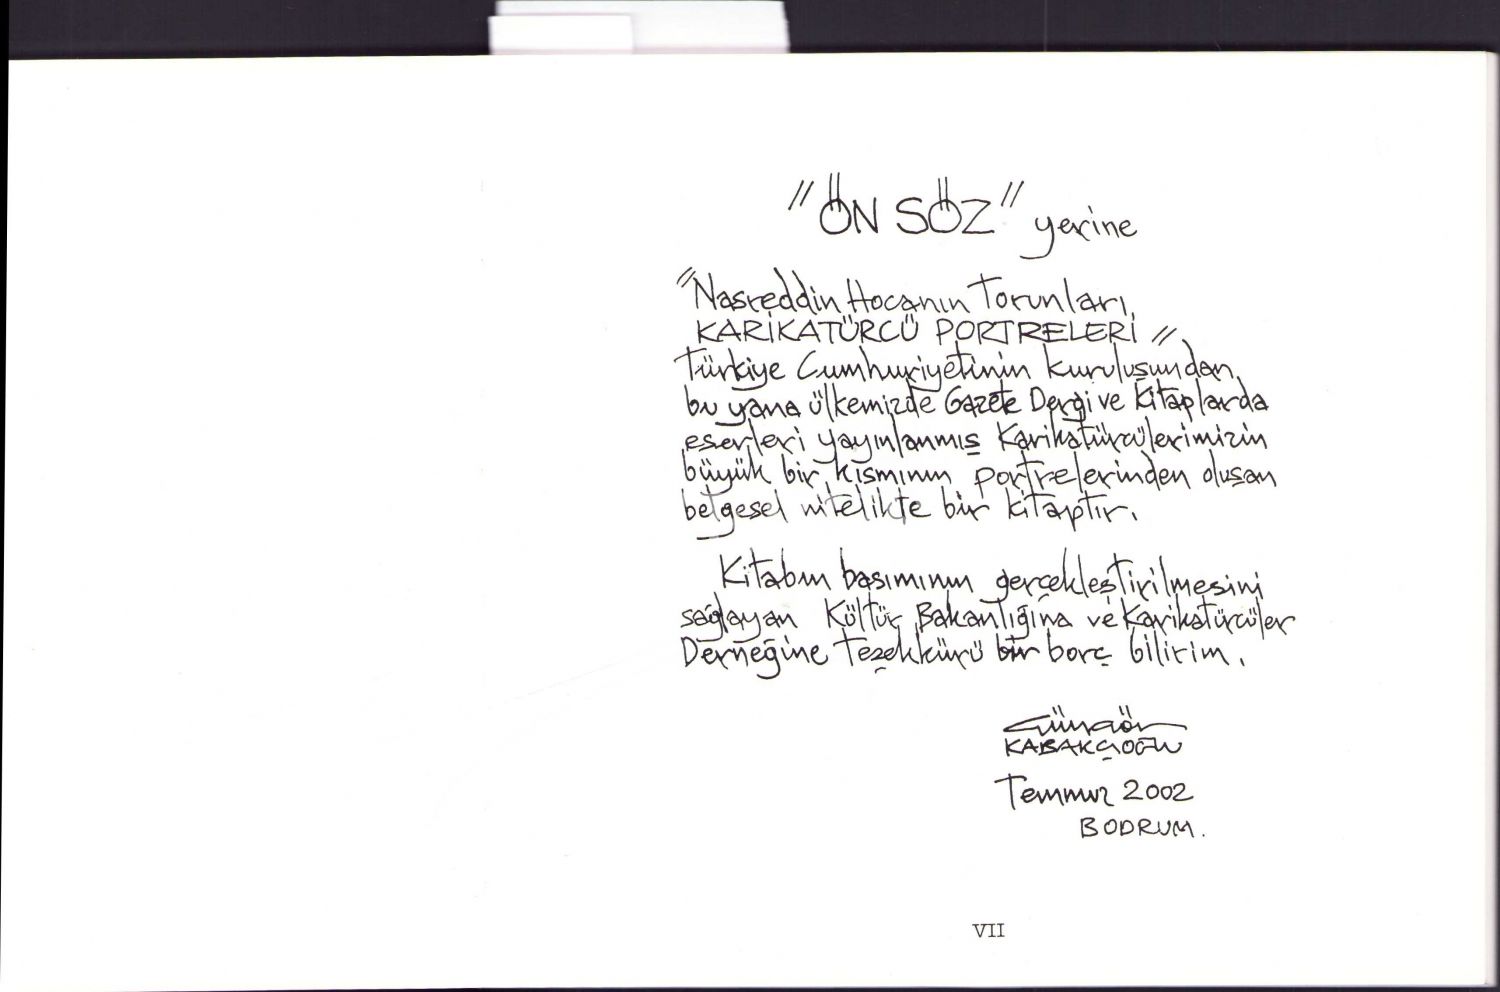 "ÖN SÖZ" yerine
"Nasreddin Hocanın Torunları,
KARİKATÜRCÜ PORTRELERİ"
Türkiye Cumhuriyetinin kuruluşundan
bu yana ülkemizde Gazete Dergi ve Kitaplarda
eserleri yayınlanmış Karikatürcülerimizin
büyük bir kısmının portrelerinden oluşan
belgesel nitelikte bir kitaptır.
Kitabın basımının gerçekleştirilmesini
sağlayan Kültür Bakanlığına ve Karikatürcüler
Derneğine teşekkürü bir borç bilirim.
Güngör
KABAKÇIOĞLU
Temmuz 2002
BODRUM.
VII